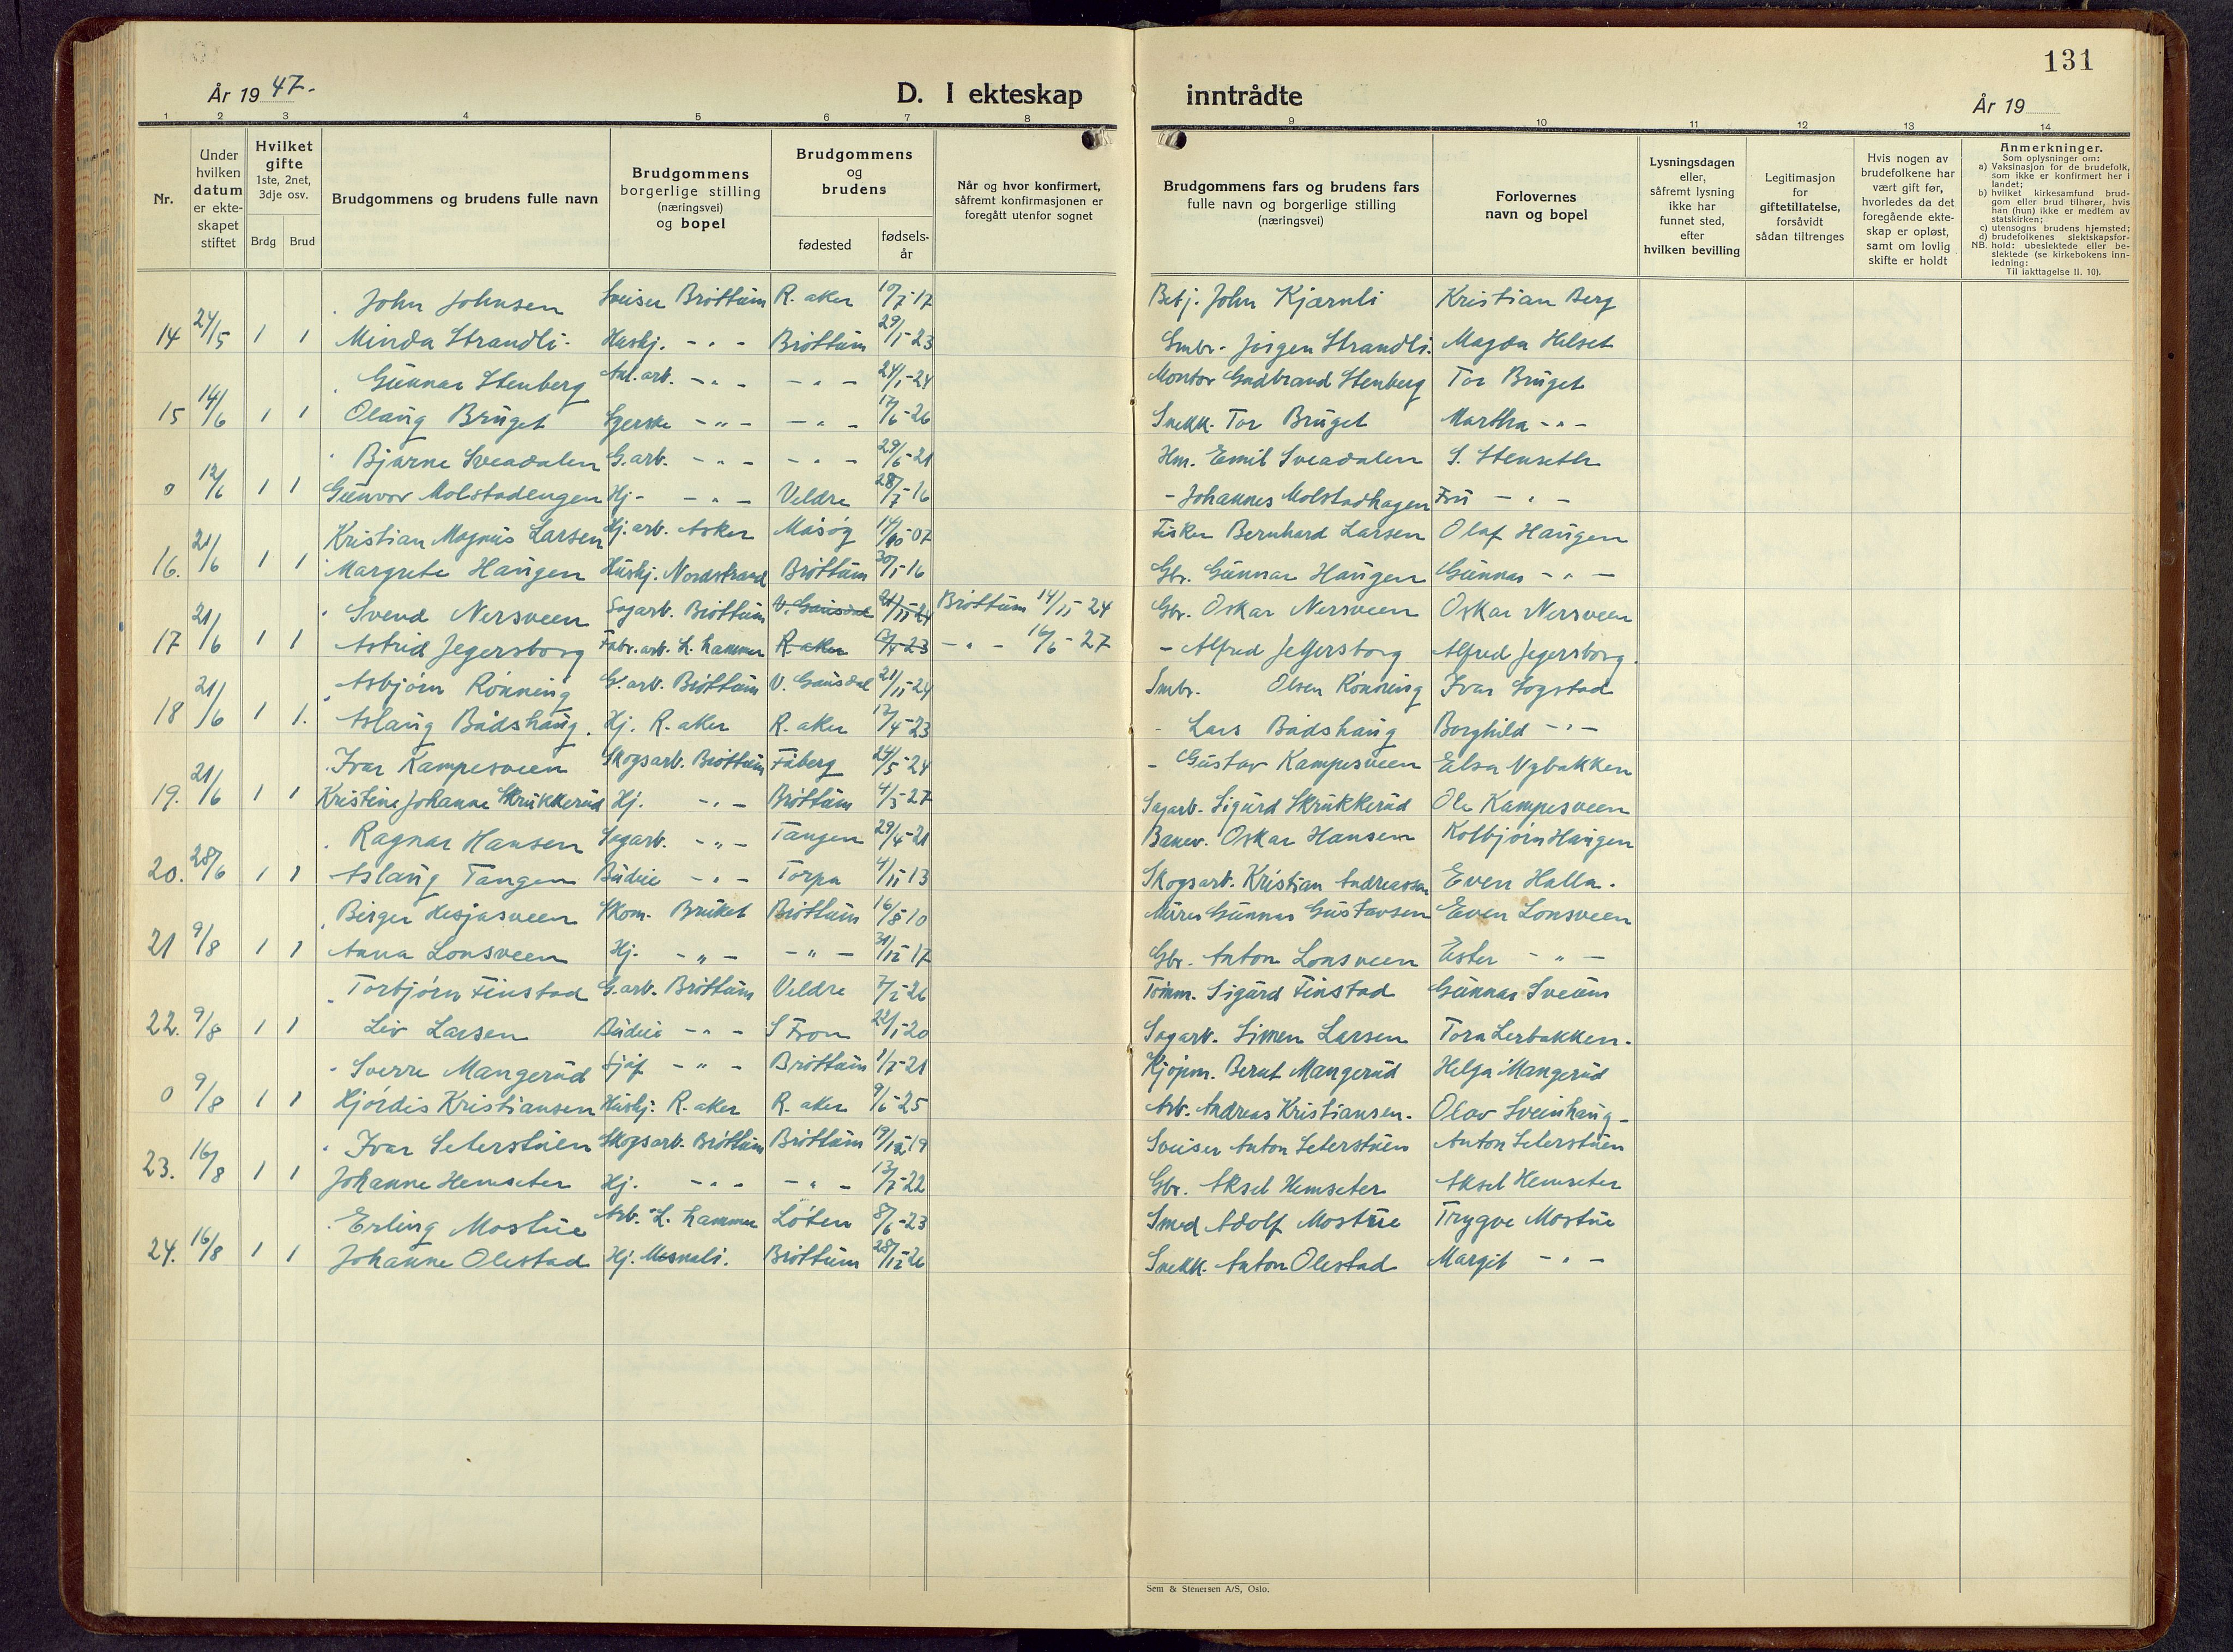 131
År 1947.
D. I ekteskap inntrådte
År 19
1 2 3 4 5 6 7 8 9 10 11 12 13 14
Nr.
Under hvilken datum er ekteskapet stiftet
Hvilket gifte 1ste, 2net, 3dje osv.
Brdg Brud
Brudgommens og brudens fulle navn
Brudgommens borgerlige stilling (næringsvei) og bopel
Brudgommens og brudens
fødested
fødselsår
Når og hvor konfirmert, såfremt konfirmasjonen er foregått utenfor sognet
Brudgommens fars og brudens fars fulle navn og borgerlige stilling (næringsvei)
Forlovernes navn og bopel
Lysningsdagen eller, såfremt lysning ikke har funnet sted, efter hvilken bevilling
Legitimasjon for giftetillatelse, forsåvidt sådan tiltrenges
Hvis nogen av brudefolkene har vært gift før, hvorledes da det foregående ekteskap er opløst, samt om lovlig skifte er holdt
Anmerkninger.
Som oplysninger om:
a) Vaksinasjon for de brudefolk, som ikke er konfirmert her i landet;
b) hvilket kirkesamfund brudgom eller brud tilhører, hvis han (hun) ikke er medlem av statskirken;
c) utensogns brudens hjemsted;
d) brudefolkenes slektskapsforhold: ubeslektede eller beslektede (se kirkebokens innledning:
NB. Til iakttagelse II. 10).
John Johnsen Sveiser Brøttum R. aker 17 Betj. John Kjærnli Kristian Berg
14 24/5 1 1 Minda Strandli. Hushj. - " - Brøttum 23 Smbr. Jørgen Strandli. Magda Helset
Gunnar Stenberg Anl.arb. - " - - " - 24/1-24 Montør Gudbrand Stenberg Tor Bruget
15 14/6 1 1 Olaug Bruget - " - - " - 17/6-26 Snekk. Tor Bruget Martha - " -
Bjarne Sveadalen G.arb. - " - - " - 29/6-21 Hm. Emil Sveadalen S. Stenseth
0 12/6 1 1 Gunvor Molstadengen Hj. - " - Veldre 28/7-16 - Johannes Molstadhagen Fru - " -
Kristian Magnus Larsen Hj.arb. Asker Måsøy 14/10-07 Fisker Bernhard Larsen Olaf Haugen
16. 21/6 1 1 Margrete Haugen Hushj. Nordstrand Brøttum 16 Gbr. Gunnar Haugen Gunnar - " -
Svend Nersveen Sagarb. Brøttum V. Gausdal 21/11-24 Brøttum 14/11 24 Gbr. Oskar Nersveen Oskar Nersveen
17 21/6 1 1 Astrid Jegersborg Fabr.arb. L.hammer R. aker 12/4-23 - " - 16/5-27 - Alfred Jegersborg Alfred Jegersborg.
Asbjørn Rønning G.arb. Brøttum V. Gausdal 21/11-24 Smbr. Olsen Rønning Ivar Sogstad
18 21/6 1 1. Aslaug Bådshaug. Hj. R. aker R. aker 12/4-23 - Lars Bådshaug Borghild - " -
Ivar Kampesveen Skogsarb. Brøttum Fåberg 24/5-24 - Gustav Kampesveen Elsa Nybakken
19. 21/6 1 1 Kristine Johanne Skrukkerud Hj. - " - Brøttum 4/3-27 Sagarb. Sigurd Skrukkerud Ole Kampesveen
Ragnar Hansen Sagarb. - " - Tangen 29/4-21 Banev. Oskar Hansen Kolbjørn Haugen
20. 28/6 1 1 Aslaug Tangen Budeie - " - Torpa 4/11 13 Skogsarb. Kristian Andreassen Even Halla.
Birger Hesjasveen Skom. Bruket Brøttum 16/8 10 Murer Gunnar Gustavsen Even Lonsveen
21 9/8 1 1 Anna Lonsveen Hj. - " - - " - 31/12 17 Gbr. Anton Lonsveen Ester - " -
Torbjørn Finstad G.arb. Brøttum Veldre 26 Tømm. Sigurd Finstad Gunnar Sveum
22. 9/8 1 1 Liv Larsen Budeie - " - S Fron 22/1-20 Sagarb. Simen Larsen Tora Lerbakken.
Sverre Mangerud Sjåf - " - Brøttum 1/7-21 Kjøpm. Bernt Mangerud Helga Mangerud
0 9/8 1 1 Hjørdis Kristiansen Hushj. R. aker R. aker 9/6-25 Arb. Andreas Kristiansen. Olav Sveinhaug
Ivar Seterstuen Skogsarb. Brøttum Brøttum 19/12 19 Sveiser Anton Seterstuen Anton Seterstuen
23. 16/8 1 1 Johanne Hemseter Hj. - " - - " - 13/7-22 Gbr. Aksel Hemseter Aksel Hemseter
Erling Mostue Arb. L. hammer Løten 8/6-23 Smed Adolf Mostue Trygve Mostue
24. 16/8 1 1 Johanne Olestad Hj. Mesnali. Brøttum 28/12-26 Snekk. Anton Olestad Margit - " -
Sem & Stenersen A/S, Oslo.